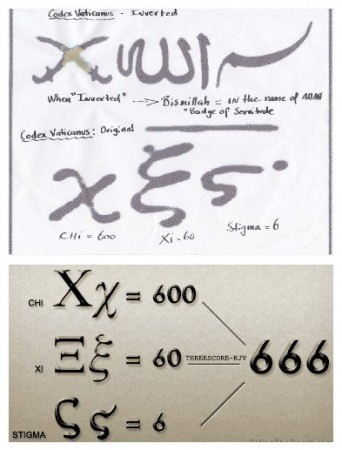 Codex Vaticanus - Inverted
بسم الله
When "Inverted" → Bismillah = in the name of Allah
"Badge of Servitude
Codex Vaticanus: Original
χ ξ ς
CHi = 600 Xi - 60 Stigma = 6
CHI Χχ = 600
XI Ξξ = 60 THREESCORE-KJV 666
STIGMA Ϛϛ = 6